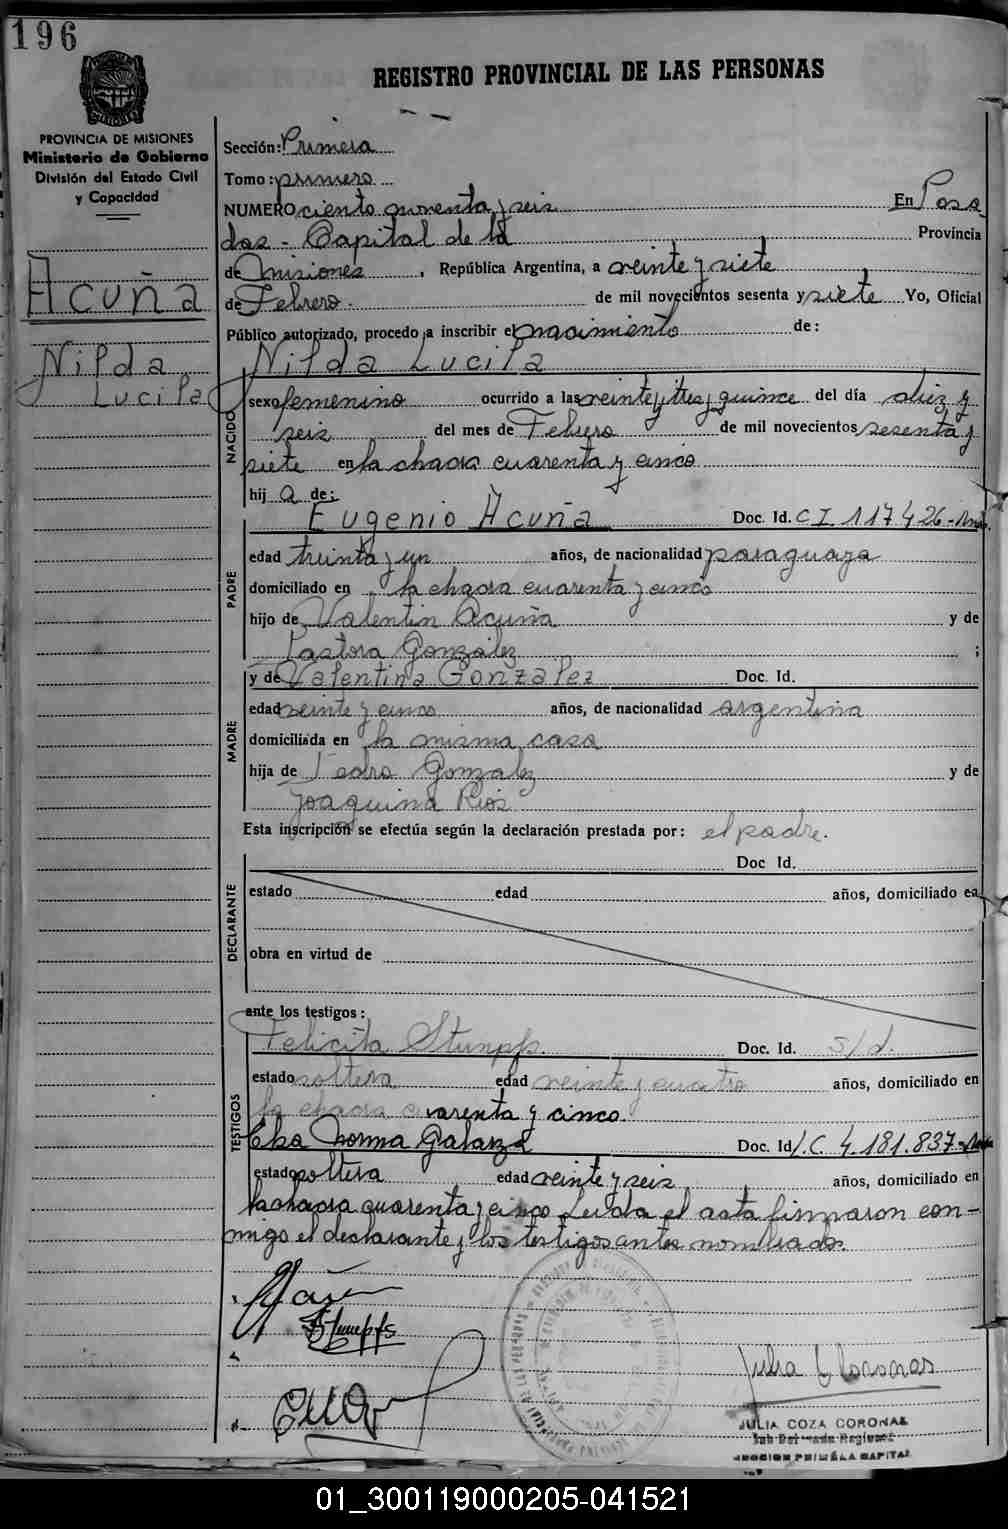 196
REGISTRO PROVINCIAL DE LAS PERSONAS
PROVINCIA DE MISIONES
Ministerio de Gobierno
División del Estado Civil
y Capacidad
Acuña
Nilda
Lucila
Sección: Primera
Tomo: primero
NUMERO ciento noventa y seis En Posa-
das - Capital de la Provincia
de Misiones, República Argentina, a veinte y siete
de Febrero. de mil novecientos sesenta y siete Yo, Oficial
Público autorizado, procedo a inscribir el nacimiento de:
Nilda Lucila
NACIDO
sexo femenino ocurrido a las veinte y tres y quince del día diez y
seis del mes de Febrero de mil novecientos sesenta y
siete en la chacra cuarenta y cinco
hij a de:
Eugenio Acuña Doc. Id. C I 117.426-
PADRE
edad treinta y un años, de nacionalidad paraguaya
domiciliado en la chacra cuarenta y cinco
hijo de Valentin Acuña y de
Pastora Gonzalez ;
y de Valentina Gonzalez Doc. Id.
MADRE
edad veinte y cinco años, de nacionalidad argentina
domiciliada en la misma casa
hija de Pedro Gonzalez y de
Joaquina Rios
Esta inscripción se efectúa según la declaración prestada por: el padre.
Doc Id.
DECLARANTE
estado edad años, domiciliado en
obra en virtud de
ante los testigos:
Felicita Stumpfs Doc. Id. S/d.
TESTIGOS
estado soltera edad veinte y cuatro años, domiciliado en
la chacra cuarenta y cinco.
Elsa Norma Galarza Doc. Id L.C. 4.181.837-
estado soltera edad veinte y seis años, domiciliado en
la chacra cuarenta y cinco Leida el acta firmaron con-
migo el declarante y los testigos antes nombrados.
Stumpfs
Julia C Coronas
JULIA COZA CORONAS
Sub Delegada Regional
SECCION PRIMERA CAPITAL
01_300119000205-041521